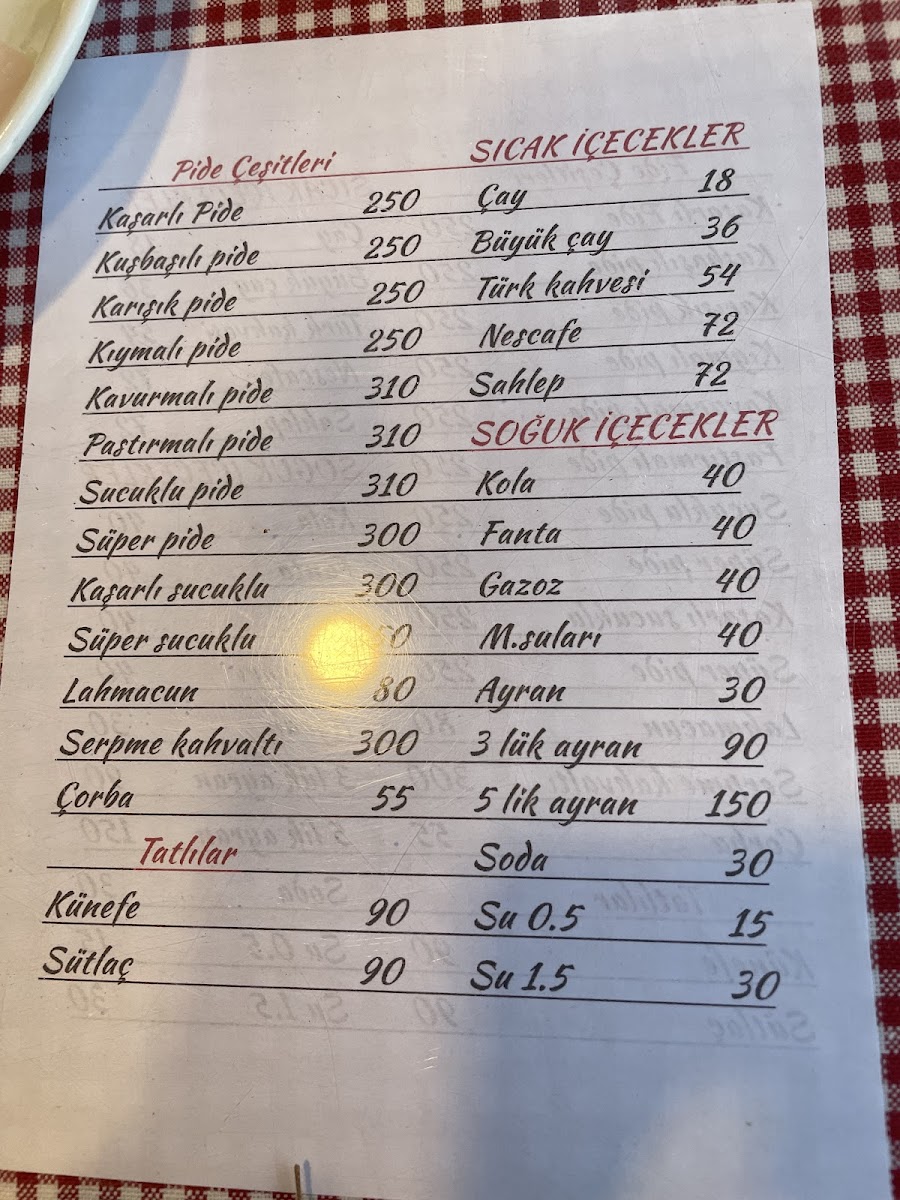 Pide Çeşitleri
Kaşarlı Pide 250
Kuşbaşılı pide 250
Karışık pide 250
Kıymalı pide 250
Kavurmalı pide 310
Pastırmalı pide 310
Sucuklu pide 310
Süper pide 300
Kaşarlı sucuklu 300
Süper sucuklu
Lahmacun 80
Serpme kahvaltı 300
Çorba 55
Tatlılar
Künefe 90
Sütlaç 90
SICAK İÇECEKLER
Çay 18
Büyük çay 36
Türk kahvesi 54
Nescafe 72
Sahlep 72
SOĞUK İÇECEKLER
Kola 40
Fanta 40
Gazoz 40
M.suları 40
Ayran 30
3 lük ayran 90
5 lik ayran 150
Soda 30
Su 0.5 15
Su 1.5 30